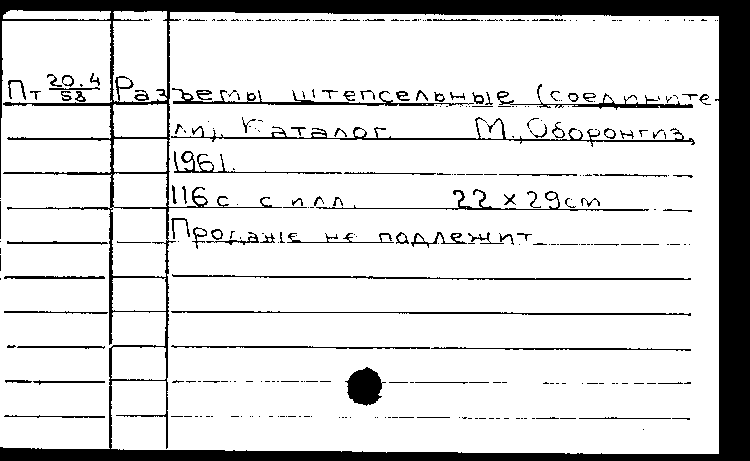 Пт 20.4/53 Разъемы штепсельные (соедините-
ли). Каталог. М., Оборонгиз,
1961.
116 с. с илл. 22 × 29 см
Продаже не падлежит.